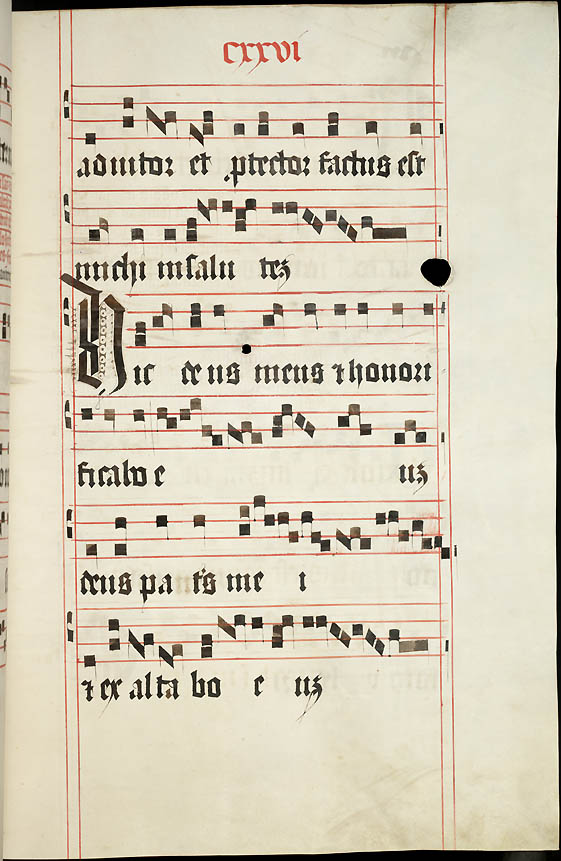 cxxvi
adiutor et ꝓtector factus est
michi in salu teꝫ
Hic deus meus ⁊ honori
ficabo e uꝫ
deus pa tris me i
⁊ ex alta bo e uꝫ